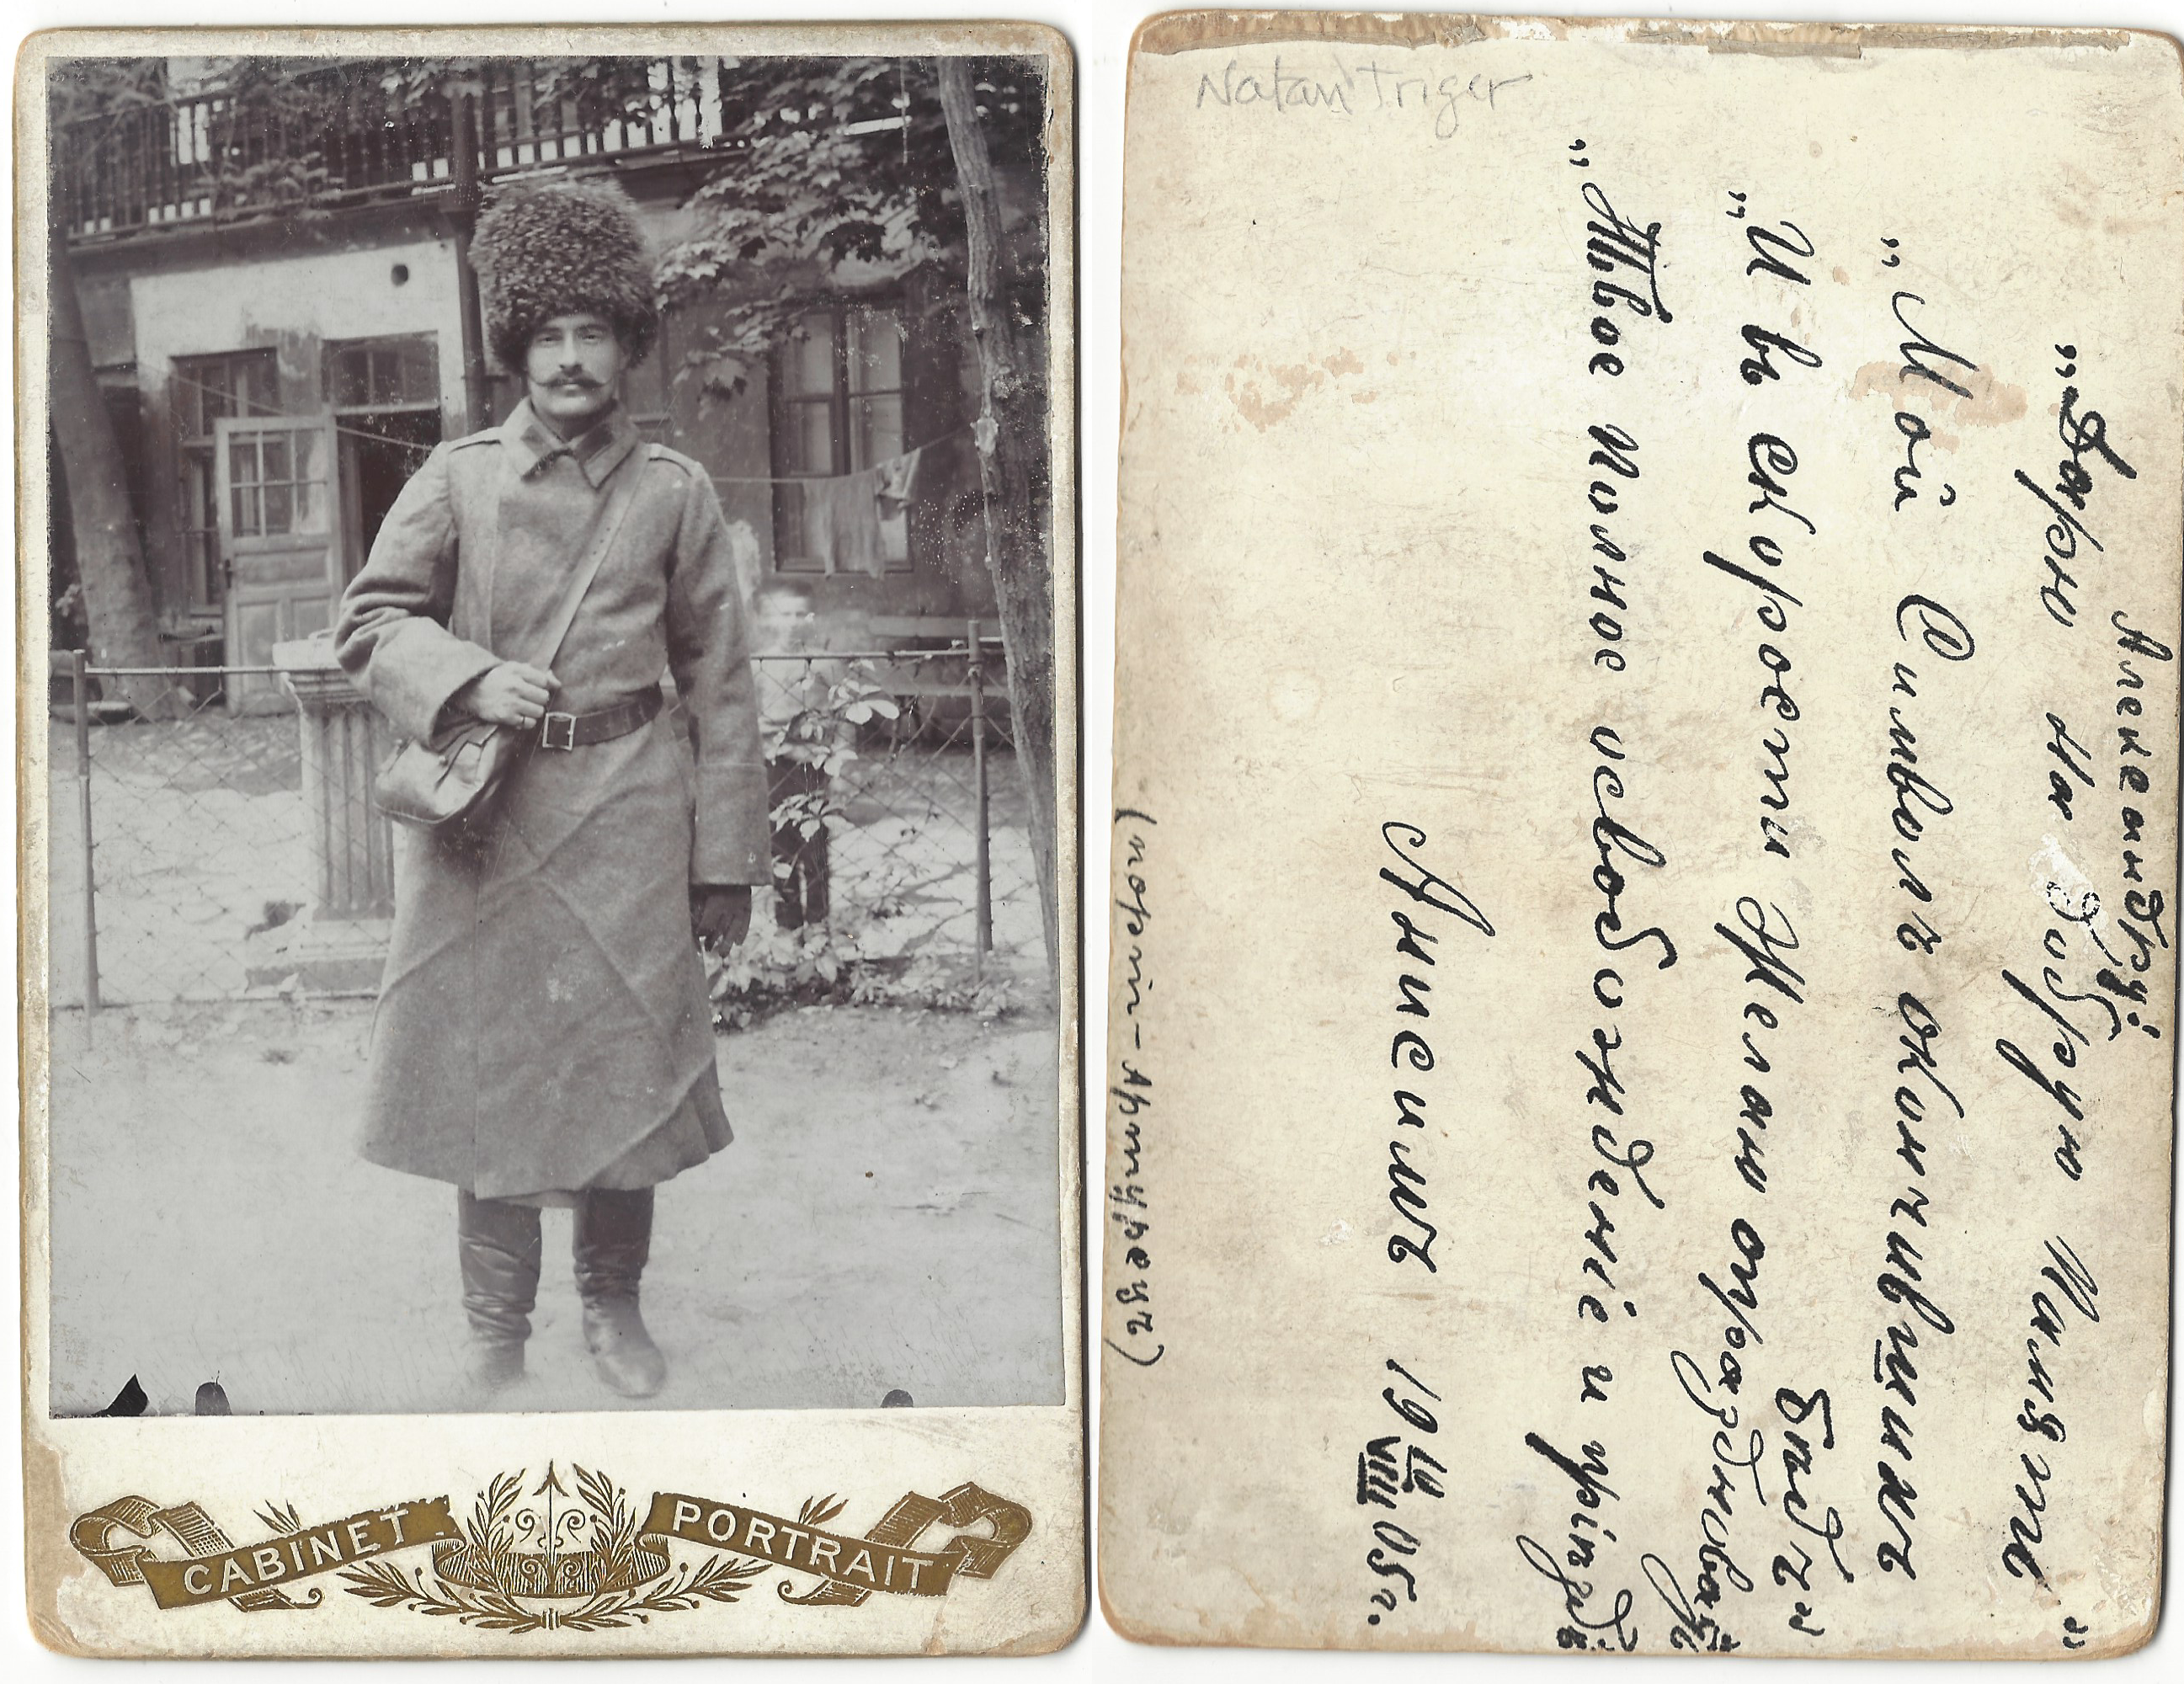 CABINET PORTRAIT
Natan Triger
Александру:
„Дарю на добрую память"
„Мой Символъ окончившихъ
Бидъ"
„И въ скорости Желаю
„Твое полное освобожденіе и
Анисимъ 19 VIII 05г.
(портъ-Артурецъ)